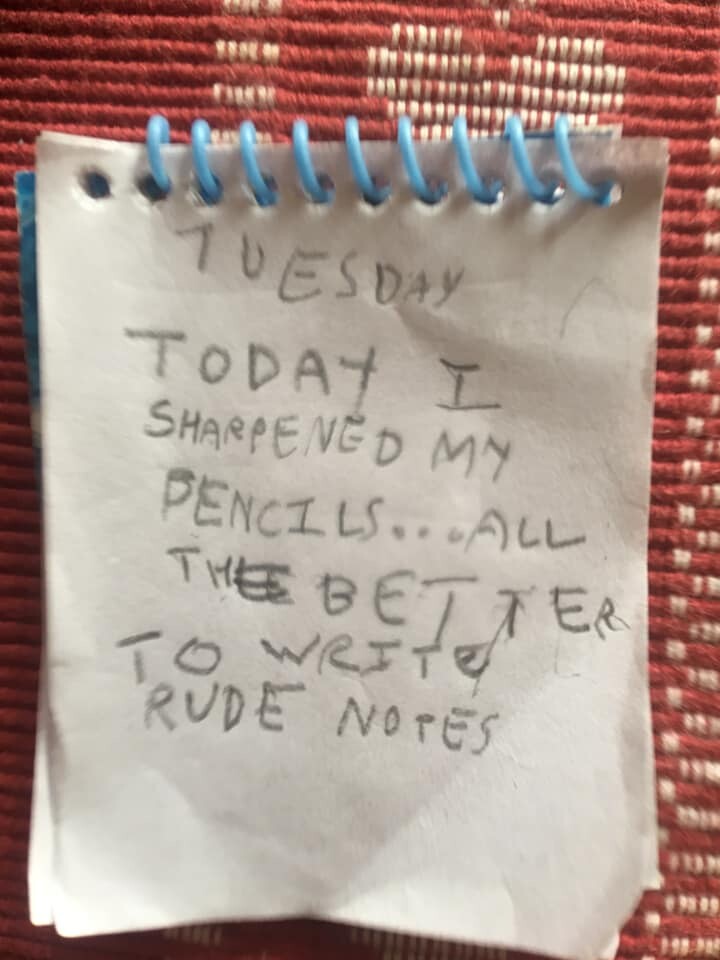 TUESDAY
TODAY I
SHARPENED MY
PENCILS...ALL
THE BETTER
TO WRITE
RUDE NOTES